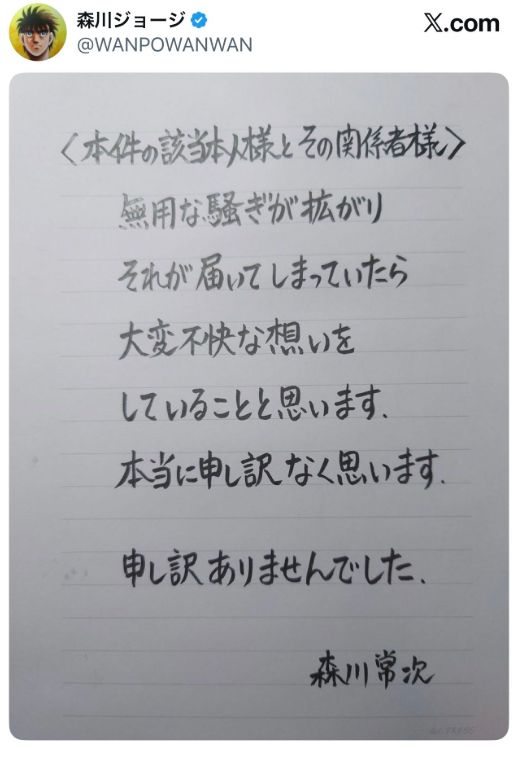 森川ジョージ
@WANPOWANWAN
X.com
〈本件の該当本人様とその関係者様〉
無用な騒ぎが拡がり
それが届いてしまっていたら
大変不快な想いを
していることと思います.
本当に申し訳なく思います.
申し訳ありませんでした.
森川常次